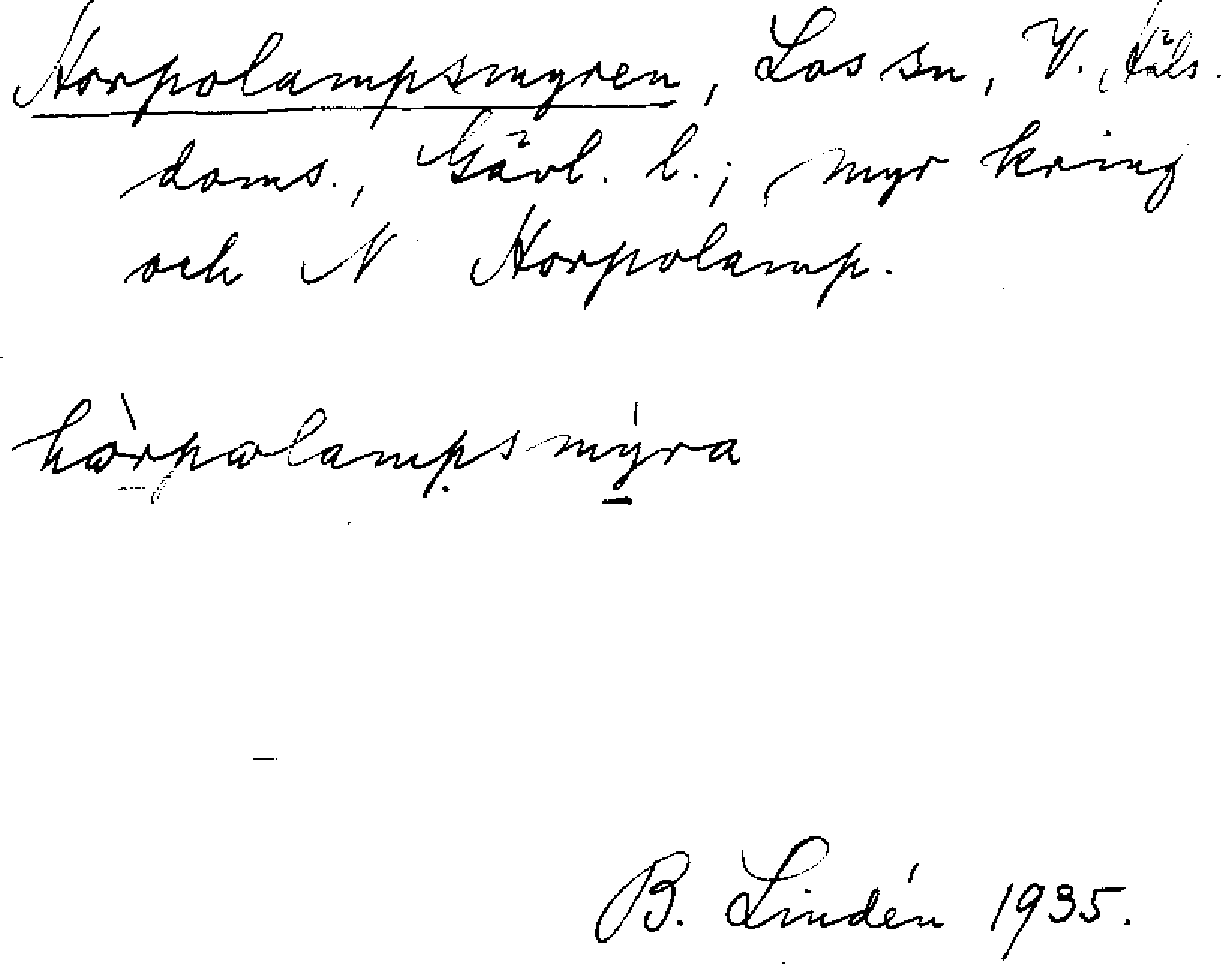 Horpolampsmyren, Los sn, V. Häls.
doms., Gävl. l.; myr kring
och N Horpolamp.
hòrpolampsmýra
B. Lindén 1935.